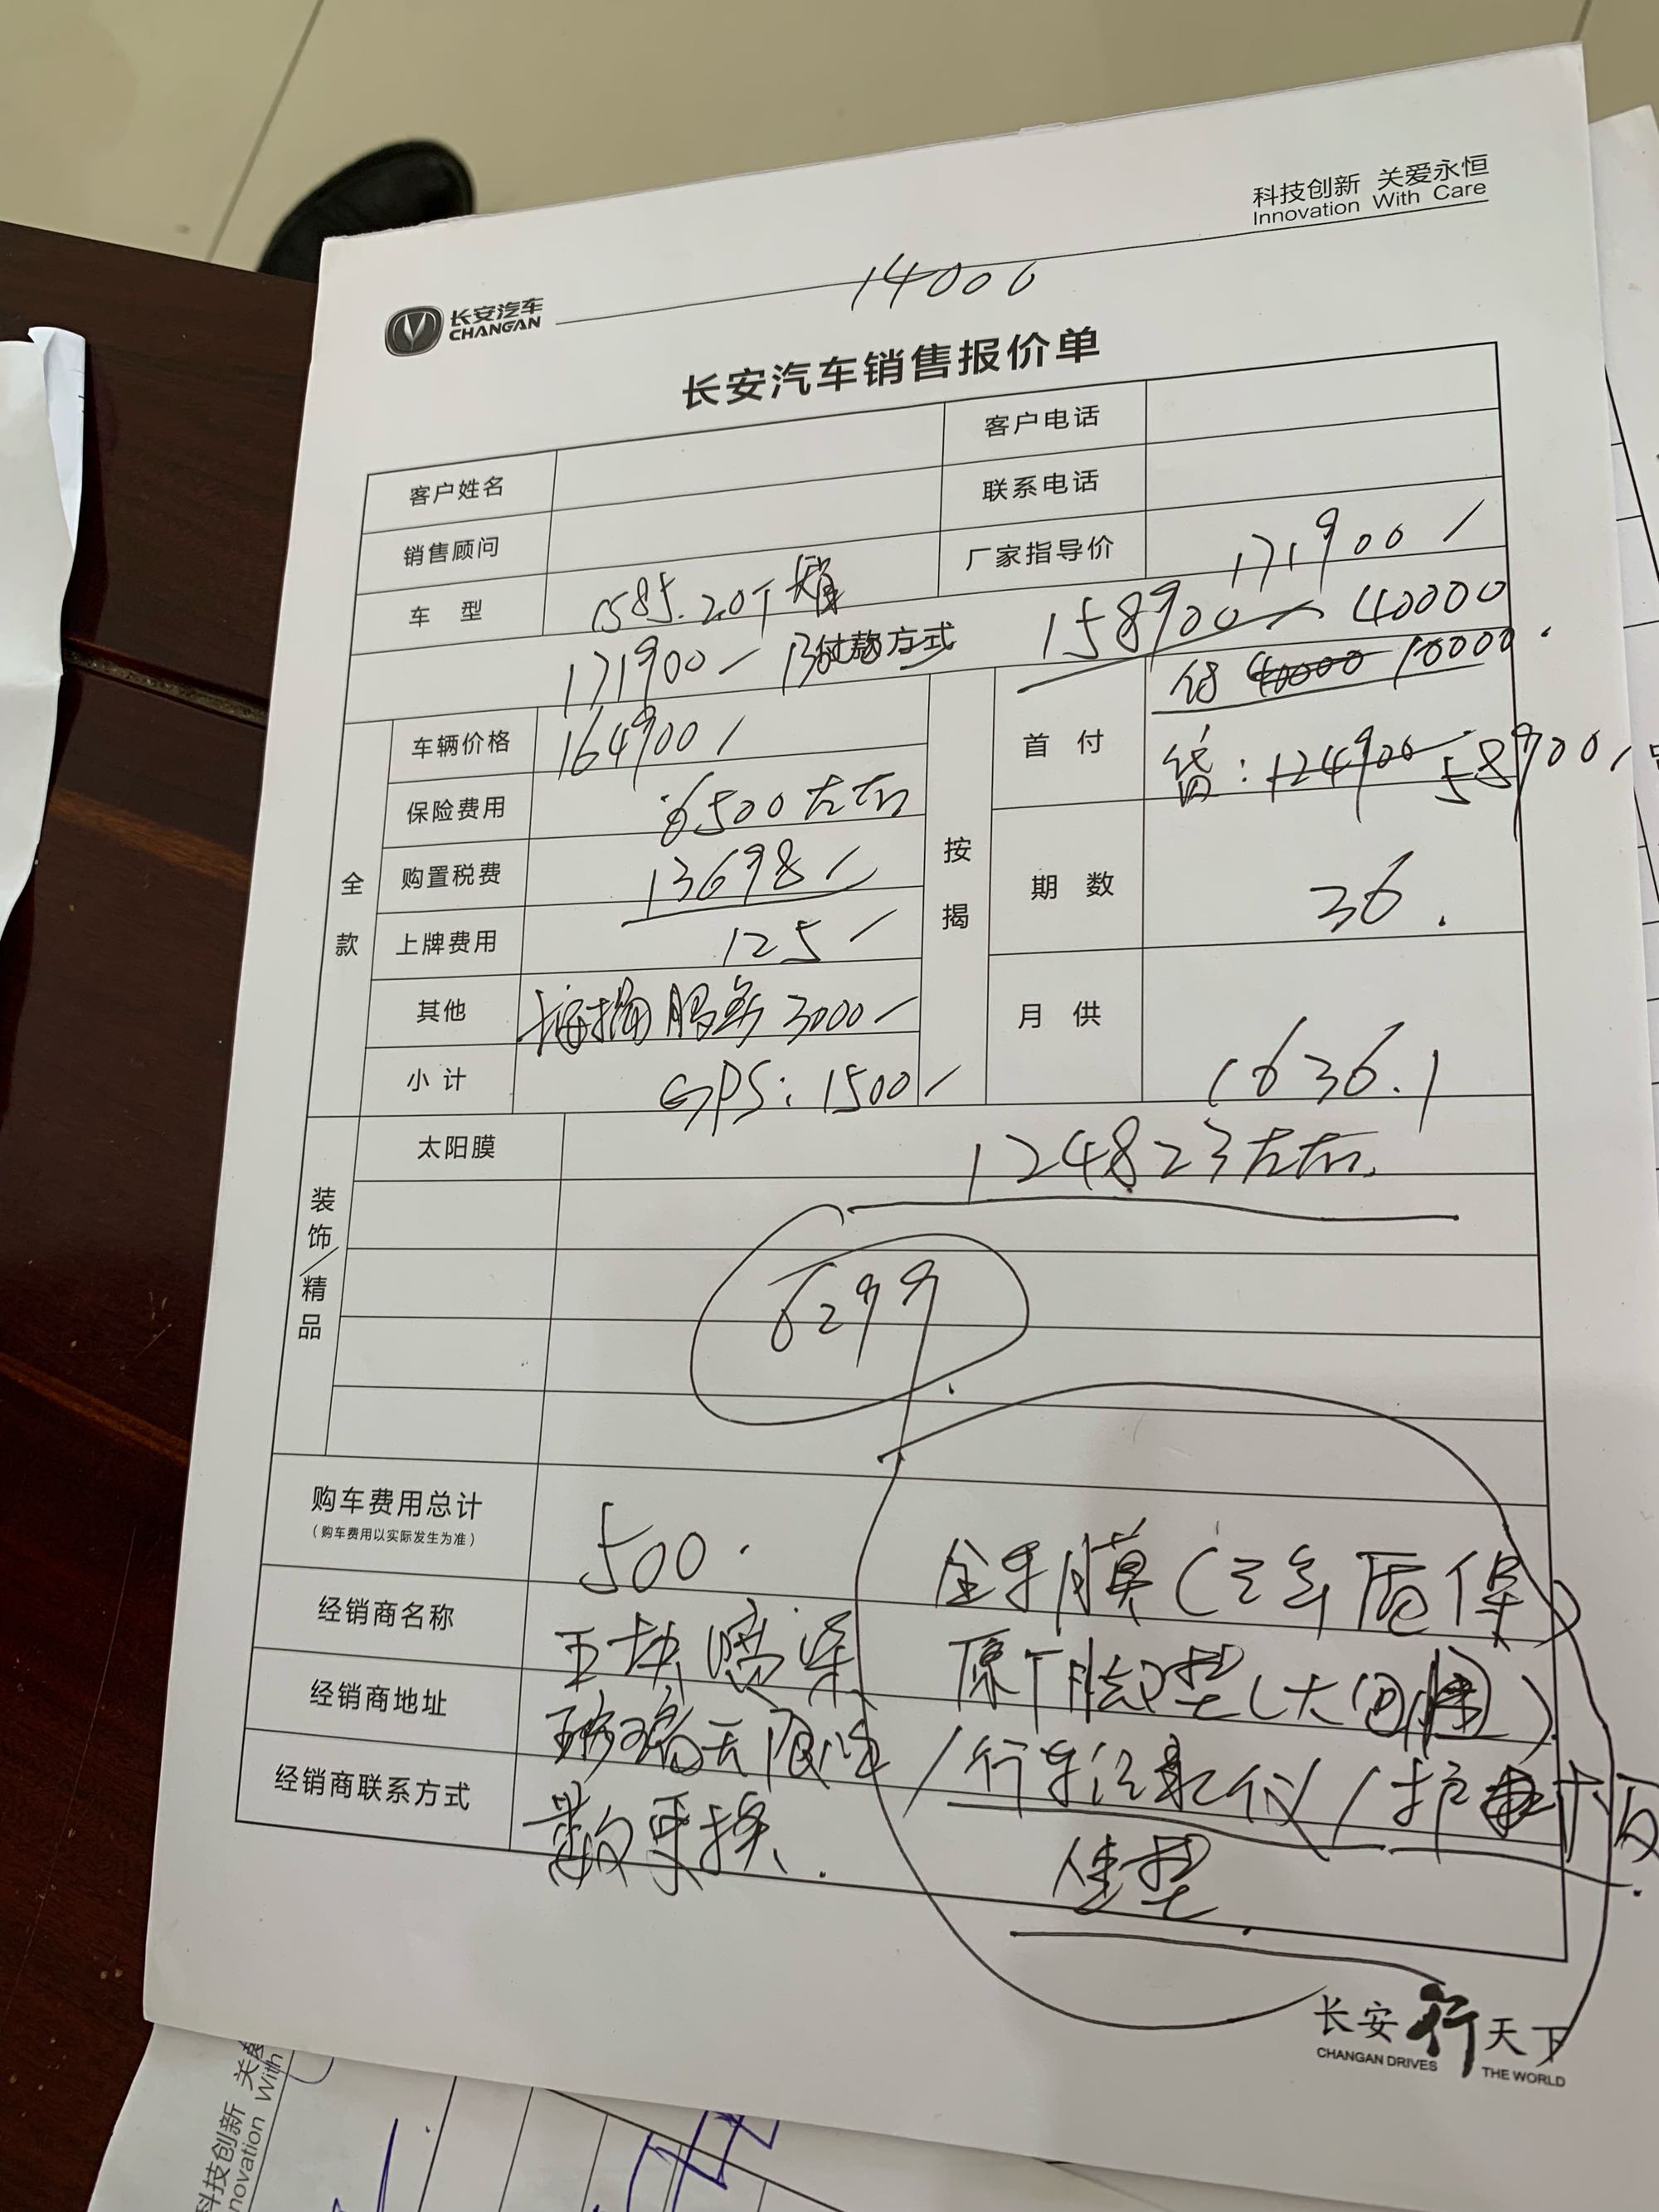 科技创新 关爱永恒
Innovation With Care
长安汽车
CHANGAN
14000
长安汽车销售报价单
客户姓名
客户电话
销售顾问
联系电话
车 型 CS85.2.0T
厂家指导价 171900
171900 付款方式 158900 40000
全款
车辆价格 164900
保险费用 6500左右
购置税费 13698
上牌费用 125
其他 按揭服务3000
小计 GPS:1500
按揭
首 付 40000 10000
贷:124900 58900
期 数 36.
月 供 1636.1
装饰/精品
太阳膜 124823左右.
6299
购车费用总计 500.
(购车费用以实际发生为准)
全车膜(三年质保)
经销商名称 五块喷漆
原厂脚垫(大包围)
经销商地址 玻璃无限次
/行车记录仪/护
经销商联系方式 数更换.
坐垫
长安行天下
CHANGAN DRIVES THE WORLD
科技创新 关
novation With